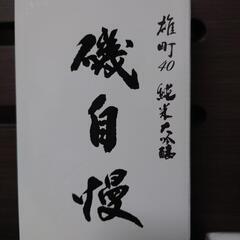 雄町40 純米大吟醸
磯自慢